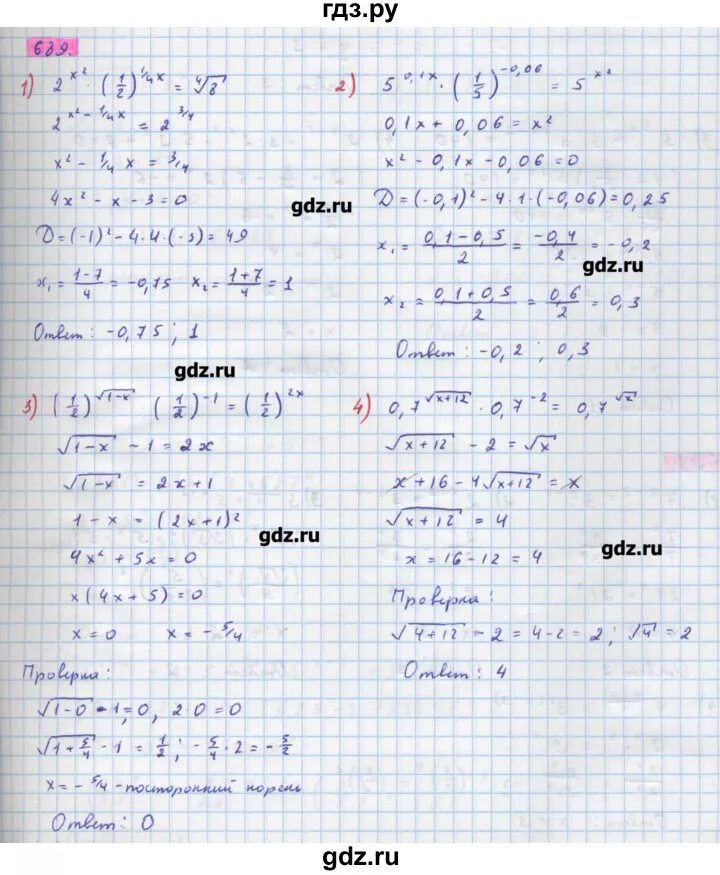 гдз.ру
639.
1) 2^(x²) · (1/2)^(1/4x) = ⁴√8
2^(x² - 1/4x) = 2^(3/4)
x² - 1/4 x = 3/4
4x² - x - 3 = 0
D = (-1)² - 4·4·(-3) = 49
x₁ = (1-7)/4 = -0,75   x₂ = (1+7)/4 = 1
Ответ: -0,75 ; 1
2) 5^(0,1x) · (1/5)^(-0,06) = 5^(x²)
0,1x + 0,06 = x²
x² - 0,1x - 0,06 = 0
D = (-0,1)² - 4·1·(-0,06) = 0,25
x₁ = (0,1-0,5)/2 = (-0,4)/2 = -0,2
x₂ = (0,1+0,5)/2 = (0,6)/2 = 0,3
Ответ: -0,2 ; 0,3
gdz.ru
gdz.ru
gdz.ru
3) (1/2)^(√(1-x)) · (1/2)^(-1) = (1/2)^(2x)
√(1-x) - 1 = 2x
√(1-x) = 2x+1
1 - x = (2x+1)²
4x² + 5x = 0
x(4x+5) = 0
x = 0   x = -5/4
Проверка:
√(1-0) - 1 = 0, 2·0 = 0
√(1+5/4) - 1 = 1/2 ; -5/4 · 2 = -5/2
x = -5/4 - посторонний корень
Ответ: 0
4) 0,7^(√(x+12)) · 0,7^(-2) = 0,7^(√x)
√(x+12) - 2 = √x
x + 16 - 4√(x+12) = x
√(x+12) = 4
x = 16 - 12 = 4
Проверка:
√(4+12) - 2 = 4-2 = 2 ; √4 = 2
Ответ: 4
gdz.ru
gdz.ru
gdz.ru
gdz.ru